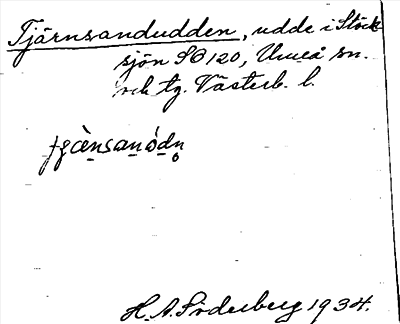 Tjärnsandudden, udde i Stöck-
sjön SO 120, Umeå sn.
och tg. Västerb. l.
H. A. Söderberg 1934.